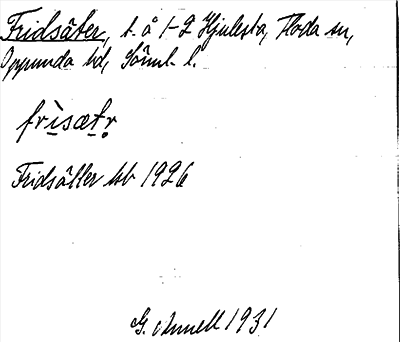 Fridsäter, t. å 1-2 Hjulesta, Floda sn,
Oppunda hd, Söml. l.
frìsætr
Fridsäller kb 1926
G. Annell 1931